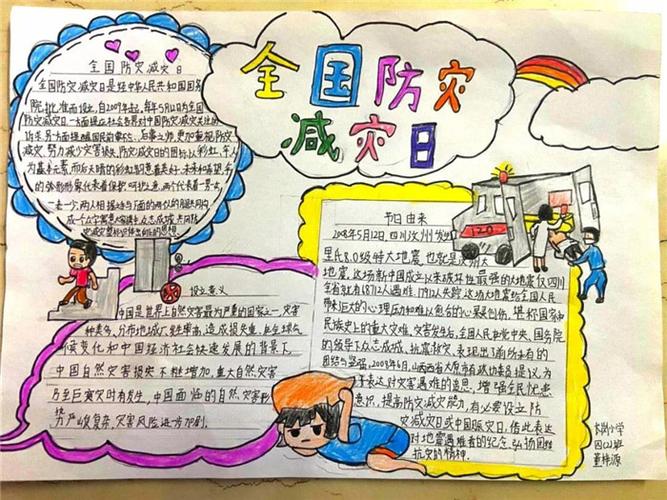 全国防灾
减灾日
全国防灾减灾日
全国防灾减灾日是经中华人民共和国国务
院批准而设立,自2009年起,每年5月12日为全国
防灾减灾日。一方面提应社会各界对中国防灾减灾关注的
诉求,另方面提醒国民前事不忘、后事之师,更加重视防灾
减灾,努力减少灾害损失。防灾减灾日的图标以彩虹、伞、人
为基本元素,雨后天晴的彩虹韵意着美好、未来和希望,伞
的弧形形象代表着保护、呵护之意,两个人代表着一男一女,
一老一少,两人相握之手与下面的两个人的腿共同构
成一个众字,寓意大家携手,众志成城,共同防
灾减灾。整标识体
的思想
设立意义
中国是世界上自然灾害最为严重的国家之一,灾害
种类多,分布地域广,发生频率高,造成损失重,在全球气
候变化和中国经济社会快速发展的背景下,
中国自然灾害损失不断增加,重大自然灾害
乃至巨灾时有发生,中国面临的自然灾害形
势严峻复杂,灾害风险进一步加剧。
节日由来
2008年5月12日,四川汶川发生
里氏8.0级特大地震,也就是汶川大
地震。这场新中国成立以来破坏性最强的大地震仅四川
全省就有68712人遇难,17912人失踪。这场大地震给全国人民
带来巨大的心理压力和难以愈合的心灵创伤,堪称国家和
民族史上的重大灾难。灾害发生后,全国人民在党中央、国务院
的领导下众志成城、抗震救灾,表现出了前所未有的
团结与坚强。2008年6月,山西太原市有政协委员提议,为
于表达对灾害遇难的追思,增强全民忧患
意识,提高防灾减灾能力,有必要设立防
灾减灾日或中国赈灾日,借此表达
对地震遇难者的纪念,弘扬团结
抗灾的精神。
120
小学
四(2)班
董梓源